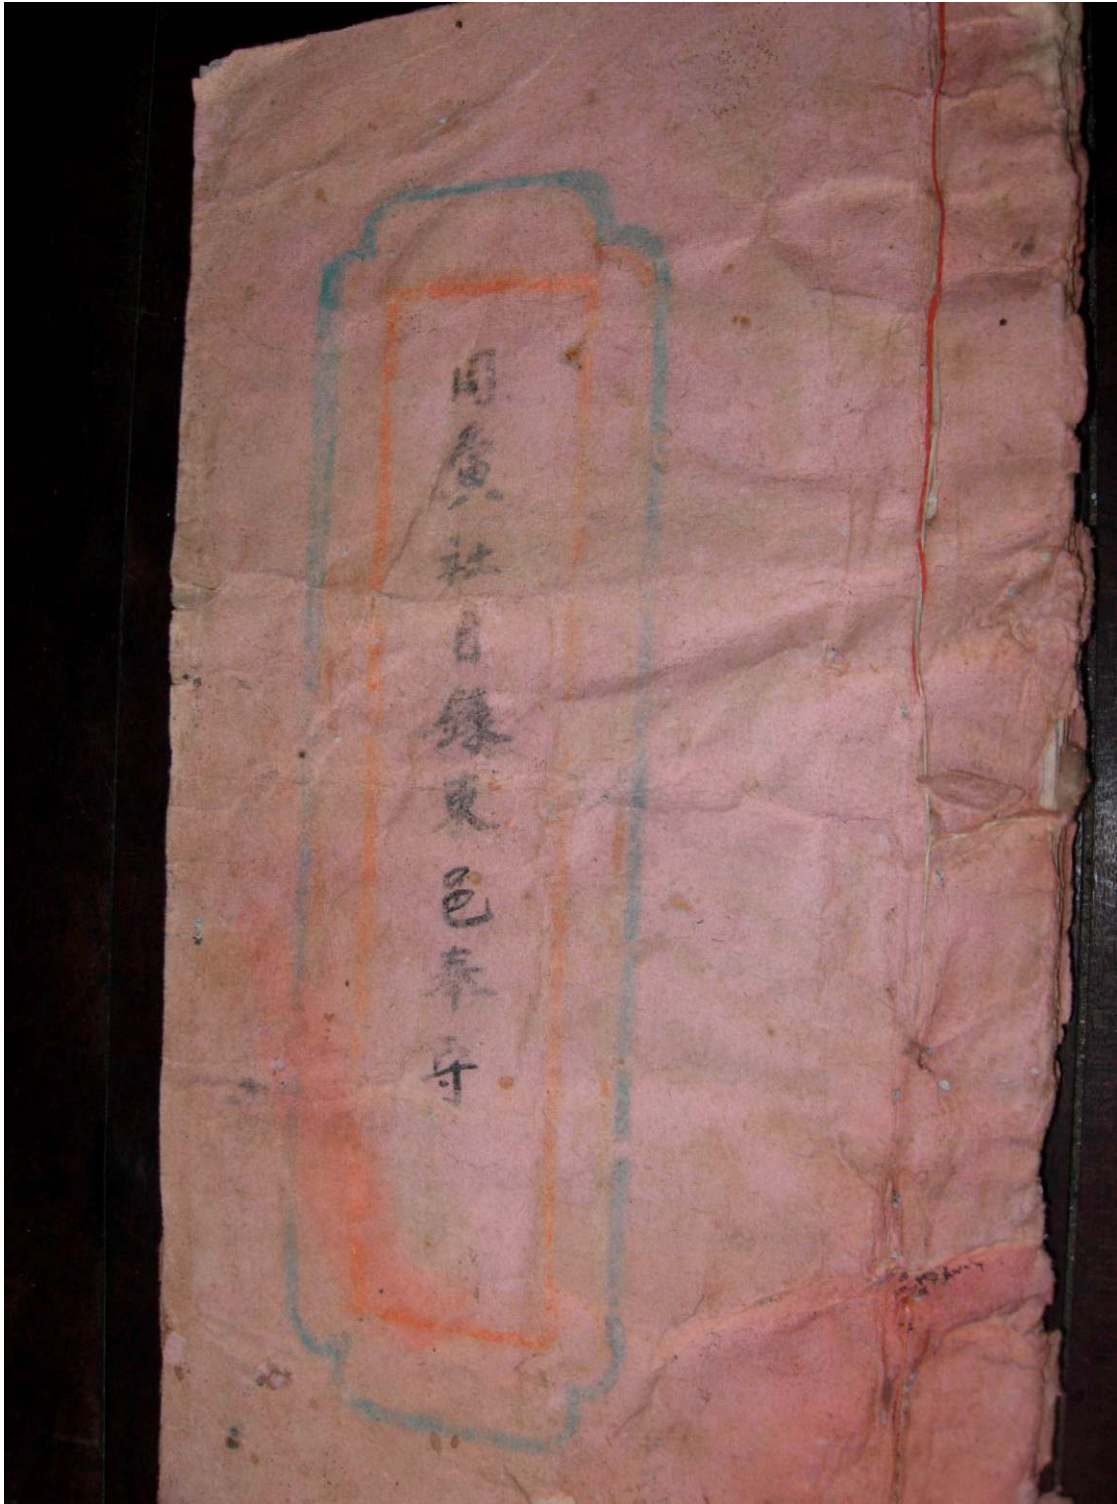 同廣社目錄東邑奉守